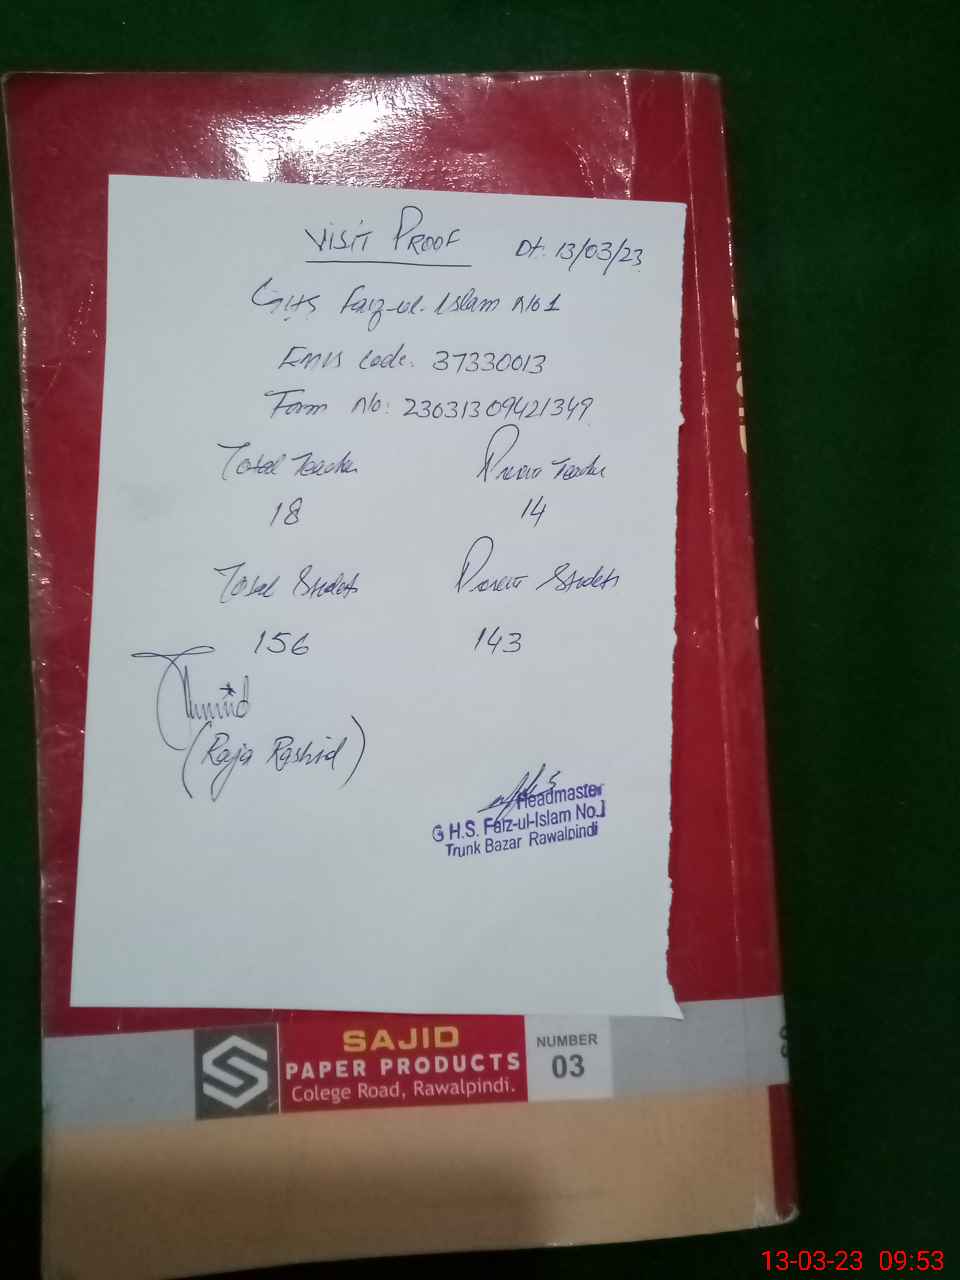 VISIT PROOF Dt: 13/03/23
GHS Faiz-ul-Islam No 1
Emis Code: 37330013
Form No: 23031309421349
Total Teacher Present Teacher
18 14
Total Students Present Students
156 143
(Raja Rashid)
Headmaster
G H.S. Faiz-ul-Islam No.1
Trunk Bazar Rawalpindi
SAJID
PAPER PRODUCTS
Colege Road, Rawalpindi.
NUMBER
03
13-03-23 09:53